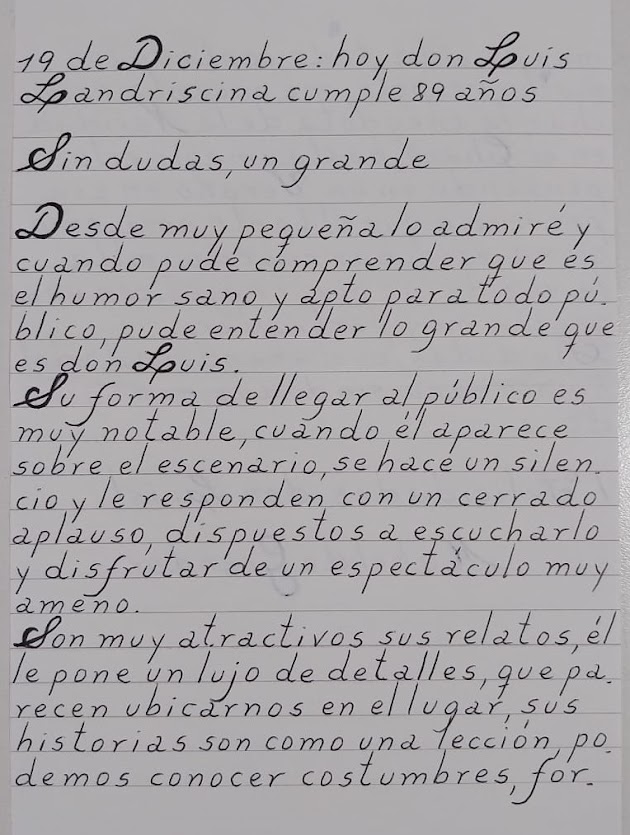 19 de Diciembre: hoy don Luis
Landriscina cumple 89 años
Sin dudas, un grande
Desde muy pequeña lo admiré y
cuando pude comprender que es
el humor sano y apto para todo pú.
blico, pude entender lo grande que
es don Luis.
Su forma de llegar al público es
muy notable, cuando él aparece
sobre el escenario, se hace un silen.
cio, y le responden con un cerrado
aplauso, dispuestos a escucharlo
y disfrutar de un espectáculo muy
ameno.
Son muy atractivos sus relatos, él
le pone un lujo de detalles, que pa.
recen ubicarnos en el lugar, sus
historias son como una lección, po.
demos conocer costumbres, for.